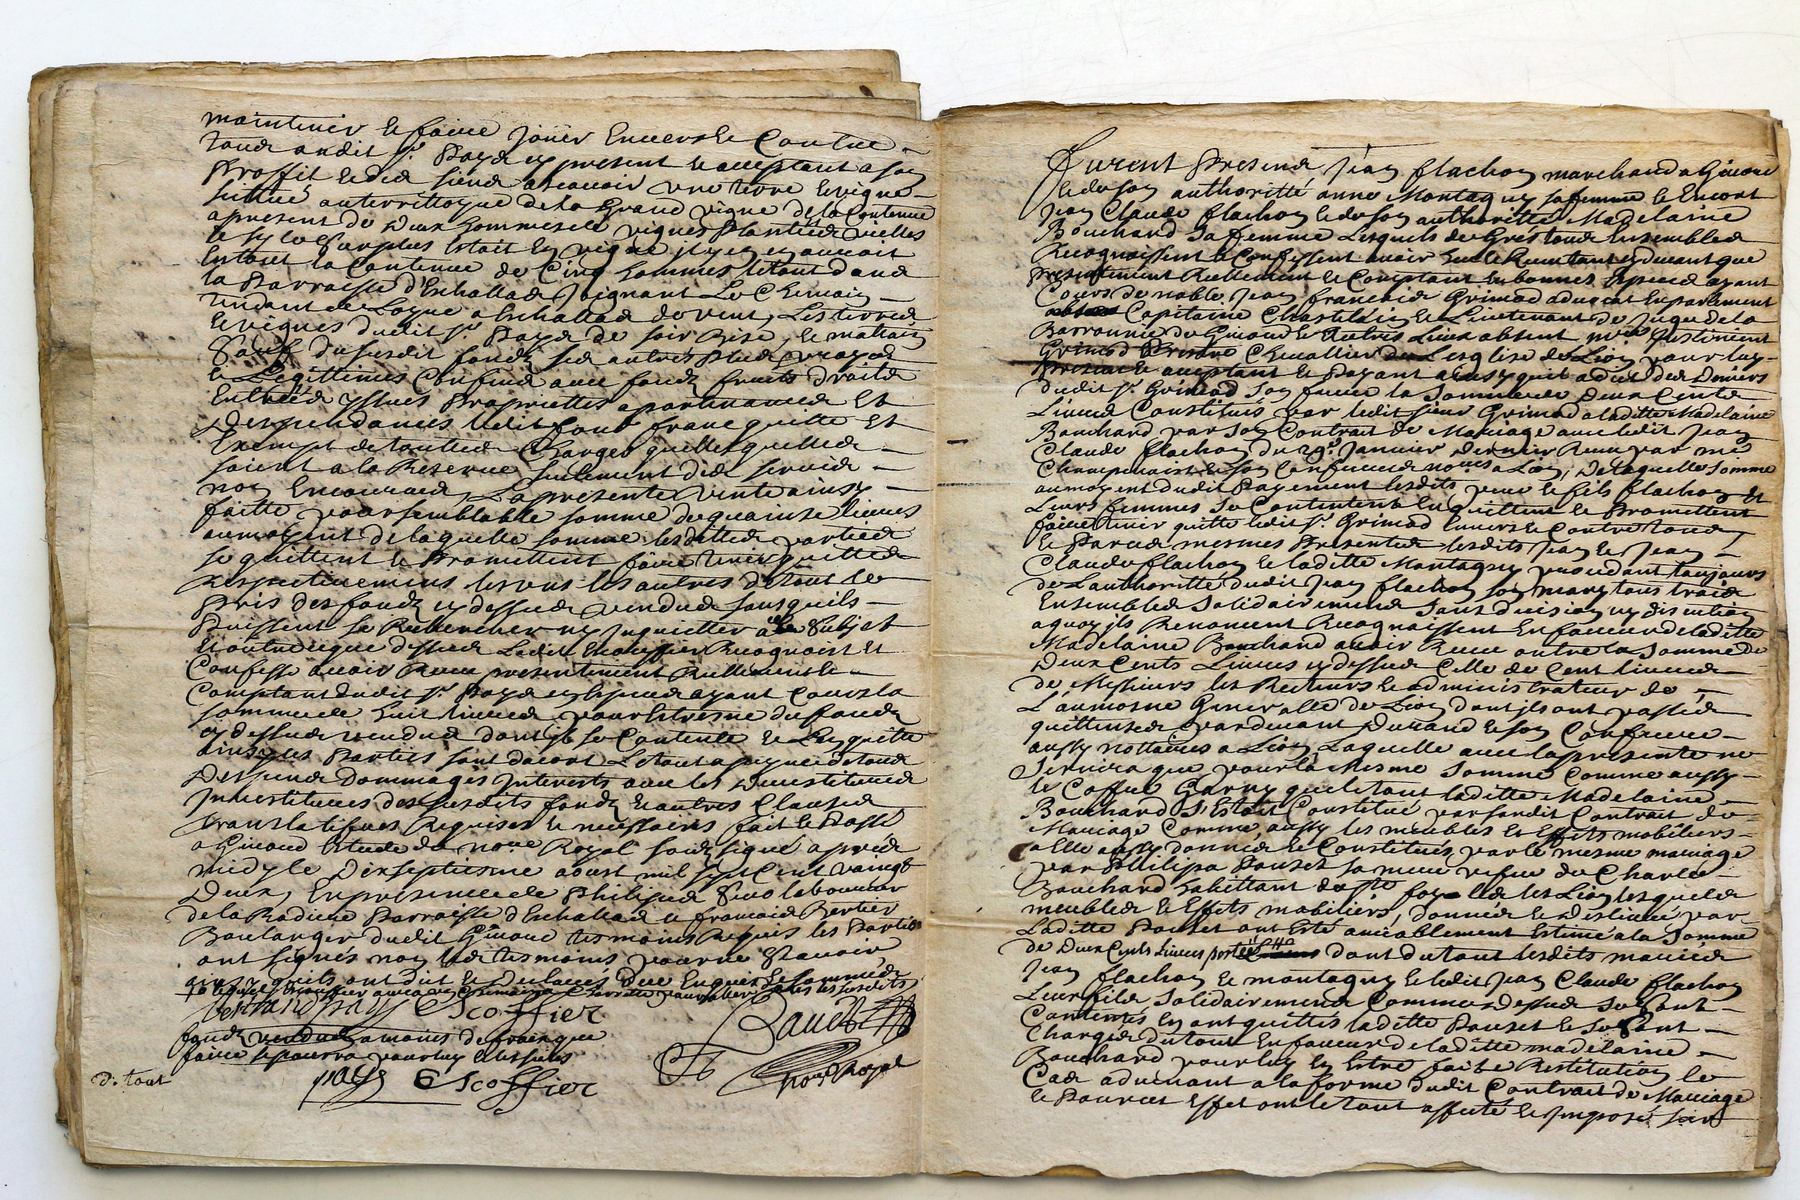 maintenir et faire jouir Envers et Contre
tous audit Sr. Pays cy present et acceptant a son
Proffit et des siens ascavoir une terre et vigne
situué au territtoyre de la Grand vigne de la Contenue
apresent de deux hommes de vignes Plantees vielles
et sy le Surplus Estoit En vigne il y en auroit
En tout la Contenue de Cinq hommes le tout dans
la Parroisse d'Eschallas Joignant Le Chemain
tendant de Loyre a Eschallas de vent, Les terres
et vignes dudit Sr Pays de soir Bize et matain
Sauf du susdit fondz ses autres Plus vrayes
et Legittimes Confins avec fondz fruits droits
Entrées yssues Proprietes apartenances Et
Despendances ledit fond franc quitte Et
Exempt de touttes Charges quelles quelles
soient a la Reserve seulement des servis
non Encourus, La presente vente ainsy
faitte pour semblable somme de quainse livres
aumoyent de laquelle somme lesdittes parties
se quittent et Promettent faire tenir quittes
respectivement les uns les autres de tout le
Pris des fondz cy dessus vendus sans quils
Puissent se Rechercher ny Inquietter a ce Subjet
Et outre que dessus Ledit Escoffier Recognoist Et
Confesse avoir Receu presentement Reellement et
Comptant dudit Sr. Pays en Espece ayant Cours la
somme de huit livres pour Estresne du fondz
cy dessus vendus dont il se Contente et Len quitte
ainsy les Parties sont dacort Le tout a peyne de tous
Despens Dommages Interests avec les Devestitures
Investitures desdits fondz Et autres Clauses
translatifves Requises et necessaires fait et Passé
a Givord Estude du nore Royal soubsigné aprés
midy le Dixseptiesme aoust mil sept Cent vaingt
Deux, En presence de Philipes
de la Rodiere Parroisse d'Eschallas et francois Bertier
Boulanger dudit Givord tesmoins Requis les Parties
ont signés non lesdits tesmoins pour ne Scavoir
ainsy quils ont dit et declarés Due Enquis Et sommés
Escoffier
fondz vendus a moins de
faire se pourra pour luy et les siens
pays Escoffier
Nore Royal
D. tout
Furent Presens Jean flachon marchand a Givord
et de son authoritté anne Montagny sa femme Et Encore
Jean Claude flachon et de son authoritté Madelaine
Bouchard sa femme Lesquels de Gres tous Ensembles
Recognoissent et Confessent avoir Eu et Receu tant cy devant que
presentement Reellement et Comptant En bonnes Espece ayant
Cours de noble Jean francois Grimod advocat En parlement
Capitaine Chastelain et Lieutenant de Juge de la
Barronnie de Givord et Autres Lieux absent
Grimod Chevallier de Lesglise de Lion pour luy
present et acceptant et Payant ainsy quil a dit des Deniers
dudit Sr. Grimod son frere la Somme de Deux Cents
Livres Constitués par ledit sieur Grimod a laditte Madelaine
Bouchard par son Contrat de Mariage avec ledit Jean
Claude flachon du 29e Janvier dernier Receu par me
et son Confrere nores a Lion, de Laquelle Somme
aumoyent dudit Payement lesdits pere et fils flachon Et
Leurs femmes se Contentent En quittent et Promettent
faire tenir quitte ledit Sr. Grimod Envers et Contre tous
Et Par ces mesmes Presentes lesdits Jean et Jean
Claude flachon et laditte Montagny procedant toujours
de Lauthoritté dudit Jean flachon son mary tous trois
Ensembles Solidairement Sans division ny discution
aquoy ils Renoncent Recognoissent En faveur de laditte
Madelaine Bouchard avoir Receu outre la Somme de
Deux Cents Livres cy dessus Celle de Cent livres
de Messieurs les Recteurs et administrateur de
L'aumosne Generalle de Lion dont ils ont passés
quittence pardevant Durand et son Confrere
aussy nottaires a Lion Laquelle avec la presente ne
Servira que pour la Mesme Somme Comme aussy
le Coffre Garny que letant laditte Madelaine
Bouchard S'Estoit Constitué par sondit Contrat de
Mariage Comme aussy les meubles Et Effets mobiliers
a Elle aussy donnés et Constitués par le mesme mariage
par Philipa Pouset sa mere vefve de Charles
Bouchard habittant de Ste foy les Lion lesquels
meubles et Effets mobiliers, donnés et deslivrés par
Laditte Pouset ont Esté amicablement Estimé a la Somme
de Deux Cents Livres dont du tout lesdits mariés
Jean flachon et montagny et ledit Jean Claude flachon
Leur fils Solidairement Comme dessus Se sont
Contentés En ont quittés laditte Pouset et Se sont
Chargés du tout En faveur de laditte madelaine
Bouchard pour luy En Estre faite Restitution le
Cas advenant a la forme dudit Contrat de Mariage
Et Pour cet Effet ont le tout affecté et Imposé sur